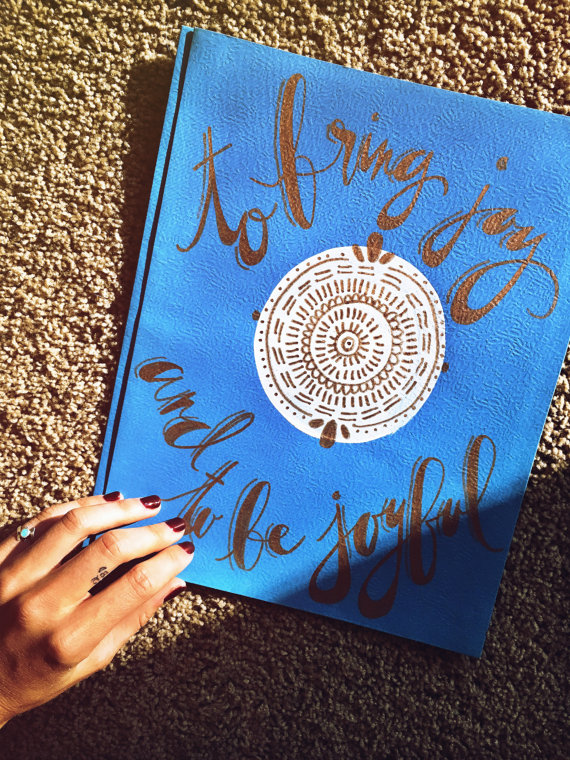 to bring joy
and
to be joyful